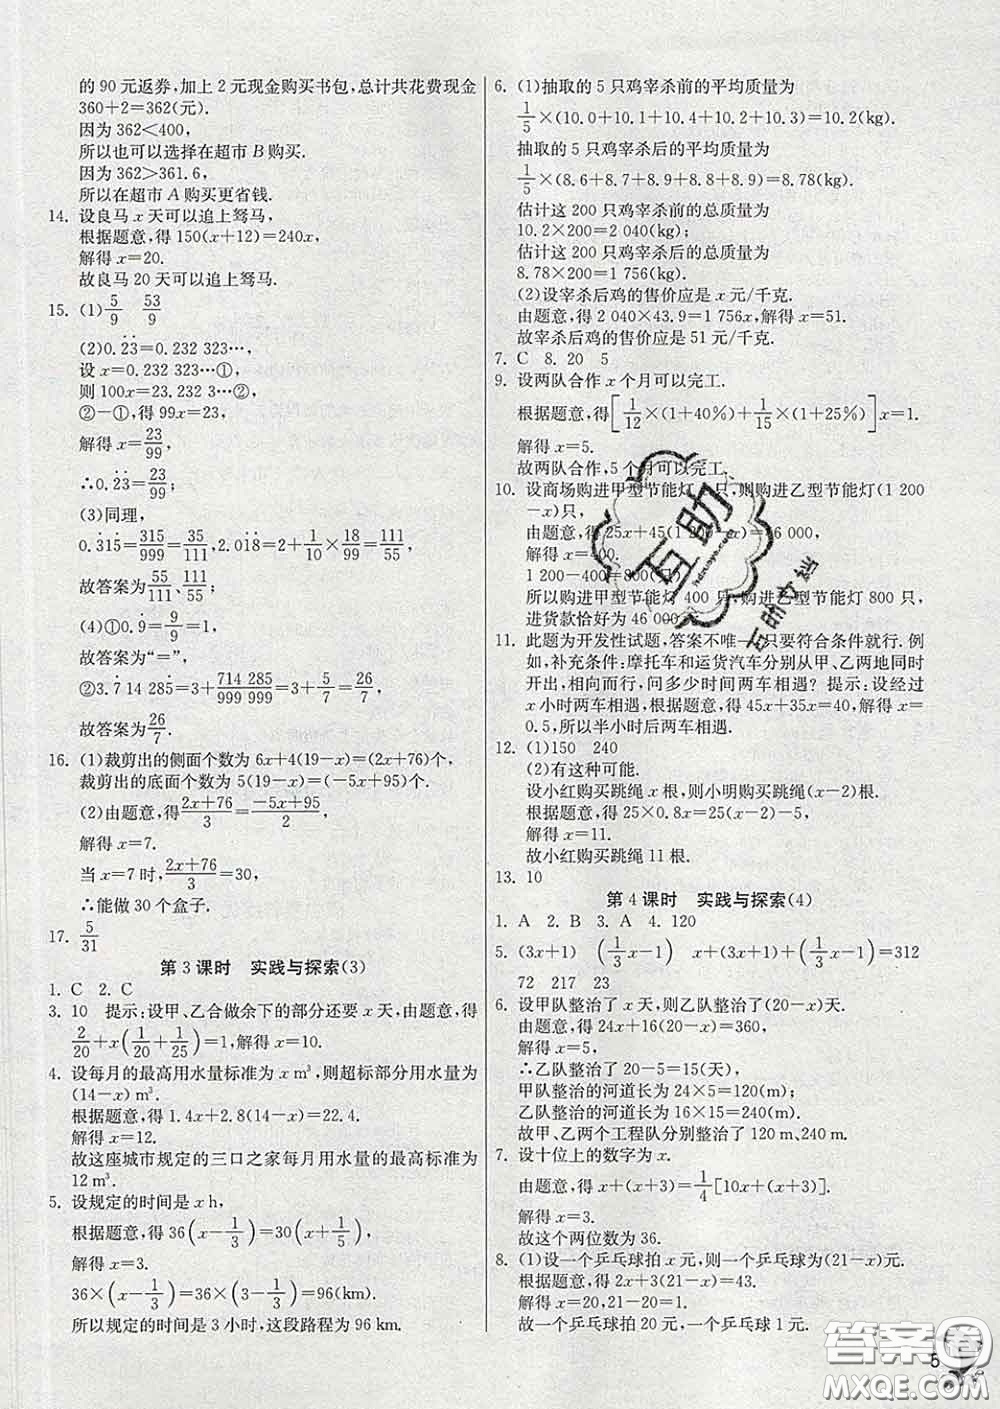 的 90 元返券,加上 2 元现金购买书包,总计共花费现金
360+2=362(元).
因为 362<400,
所以也可以选择在超市 B 购买.
因为 362>361.6,
所以在超市 A 购买更省钱.
14. 设良马 x 天可以追上驽马,
根据题意,得 150(x+12)=240x,
解得 x=20.
故良马 20 天可以追上驽马.
15. (1) 5/9  53/99
(2)0.2̇3̇=0.232 323…,
设 x=0.232 323…①,
则 100x=23.232 3…②,
②-①,得 99x=23,
解得 x=23/99,
∴0.2̇3̇=23/99.
(3)同理,
0.3̇15̇=315/999=35/111,2.01̇8̇=2+1/10×18/99=111/55,
故答案为 55/111、111/55.
(4)①0.9̇=9/9=1,
故答案为“=”,
②3.7̇14 285̇=3+714 285/999 999=3+5/7=26/7,
故答案为 26/7.
16. (1)裁剪出的侧面个数为 6x+4(19-x)=(2x+76)个,
裁剪出的底面个数为 5(19-x)=(-5x+95)个.
(2)由题意,得 (2x+76)/3=(-5x+95)/2,
解得 x=7.
当 x=7 时,(2x+76)/3=30,
∴能做 30 个盒子.
17. 5/31
第 3 课时 实践与探索(3)
1. C 2. C
3. 10 提示:设甲、乙合做余下的部分还要 x 天,由题意,得
2/20+x(1/20+1/25)=1,解得 x=10.
4. 设每月的最高用水量标准为 x m³,则超标部分用水量为
(14-x) m³.
根据题意,得 1.4x+2.8(14-x)=22.4.
解得 x=12.
故这座城市规定的三口之家每月用水量的最高标准为
12 m³.
5. 设规定的时间是 x h,
根据题意,得 36(x-1/3)=30(x+1/3),
解得 x=3.
36×(x-1/3)=36×(3-1/3)=96(km).
所以规定的时间是 3 小时,这段路程为 96 km.
6. (1)抽取的 5 只鸡宰杀前的平均质量为
1/5×(10.0+10.1+10.4+10.2+10.3)=10.2(kg).
抽取的 5 只鸡宰杀后的平均质量为
1/5×(8.6+8.7+8.8+8.9+8.9)=8.78(kg).
估计这 200 只鸡宰杀前的总质量为
10.2×200=2 040(kg);
估计这 200 只鸡宰杀后的总质量为
8.78×200=1 756(kg).
(2)设宰杀后鸡的售价应是 x 元/千克.
由题意,得 2 040×43.9=1 756x,解得 x=51.
故宰杀后鸡的售价应是 51 元/千克.
7. C 8. 20 5
9. 设两队合作 x 个月可以完工.
根据题意,得[1/12×(1+40%)+1/15×(1+25%)]x=1.
解得 x=5.
故两队合作,5 个月可以完工.
10. 设商场购进甲型节能灯 只,则购进乙型节能灯(1 200
-x)只,
由题意,得 25x+45(1 200-x)=46 000,
解得 x=400.
1 200-400=800(只).
所以购进甲型节能灯 400 只,购进乙型节能灯 800 只,
进货款恰好为 46 000 元.
11. 此题为开发性试题,答案不唯一,只要符合条件就行. 例
如,补充条件:摩托车和运货汽车分别从甲、乙两地同时
开出,相向而行,问多少时间两车相遇? 提示:设经过
x 小时两车相遇. 根据题意,得 45x+35x=40,解得 x=
0.5,所以半小时后两车相遇.
12. (1)150 240
(2)有这种可能.
设小红购买跳绳 x 根,则小明购买跳绳(x-2)根.
根据题意,得 25×0.8x=25(x-2)-5,
解得 x=11.
故小红购买跳绳 11 根.
13. 10
第 4 课时 实践与探索(4)
1. A 2. B 3. A 4. 120
5. (3x+1) (1/3x-1) x+(3x+1)+(1/3x-1)=312
72 217 23
6. 设甲队整治了 x 天,则乙队整治了(20-x)天.
由题意,得 24x+16(20-x)=360,
解得 x=5,
∴乙队整治了 20-5=15(天),
甲队整治的河道长为 24×5=120(m);
乙队整治的河道长为 16×15=240(m).
故甲、乙两个工程队分别整治了 120 m、240 m.
7. 设十位上的数字为 x.
由题意,得 x+(x+3)=1/4[10x+(x+3)].
解得 x=3.
故这个两位数为 36.
8. (1)设一个乒乓球拍 x 元,则一个乒乓球为(21-x)元.
根据题意,得 2x+3(21-x)=43.
解得 x=20,21-20=1.
故一个乒乓球拍 20 元,一个乒乓球 1 元.
5
互助
答案圈
MXQE.COM